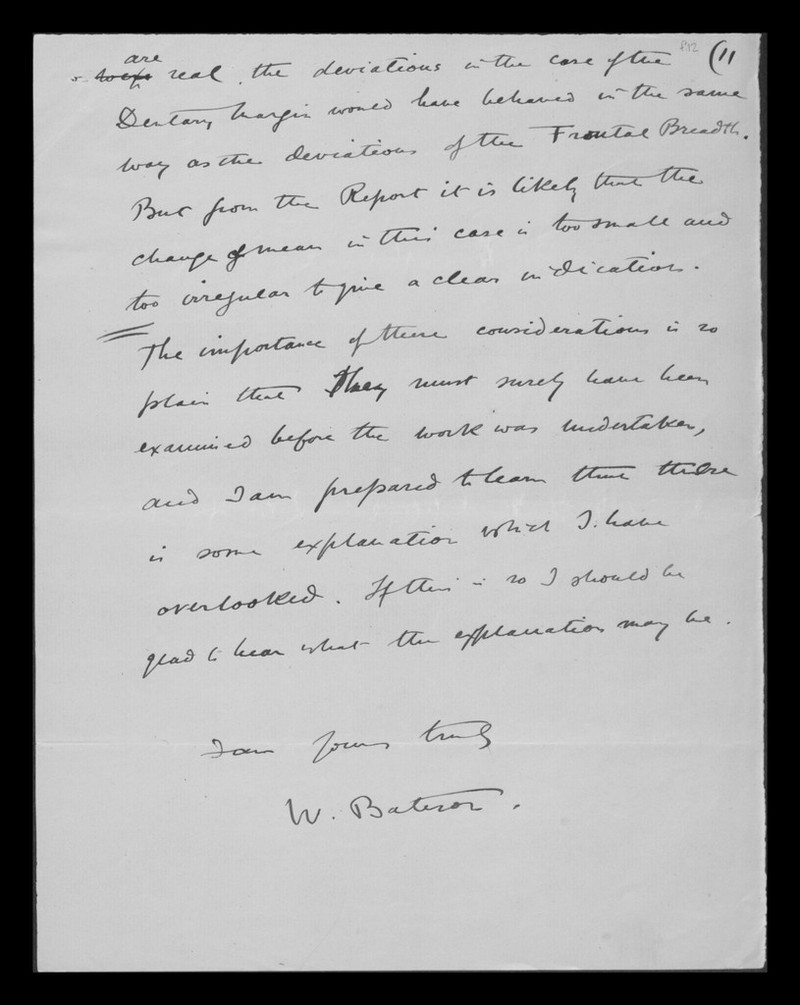 (11
are
real, the deviations in the case of the
Dentary Margin would have behaved in the same
way as the deviations of the Frontal Breadth.
But from the Report it is likely that the
change of mean in this case is too small and
too irregular to give a clear indication.
The importance of these considerations is so
plain that they must surely have been
examined before the work was undertaken,
and I am prepared to learn that there
is some explanation which I have
overlooked. If this is so I should be
glad to hear what the explanation may be.
I am yours truly
W. Bateson.